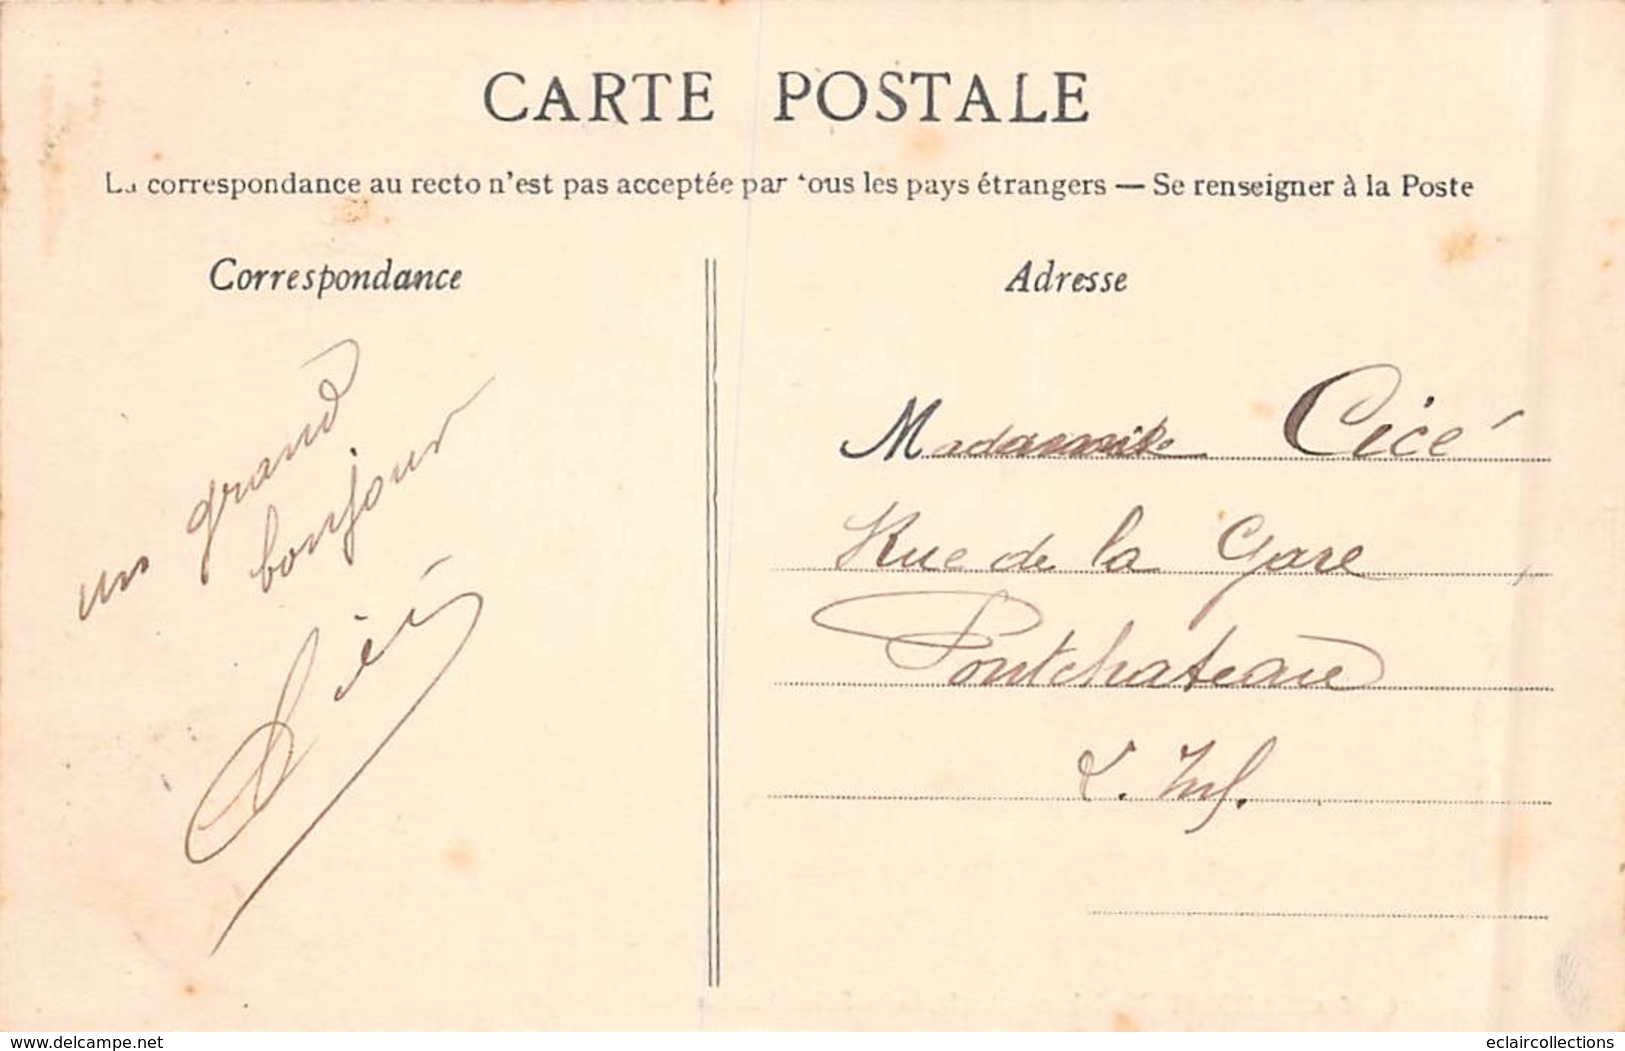 CARTE POSTALE
La correspondance au recto n'est pas acceptée par tous les pays étrangers — Se renseigner à la Poste
Correspondance
un grand
bonjour
Adresse
Cicé
Rue de la Gare
Pontchateau
L. Inf.
www.delcampe.net
eclaircollections